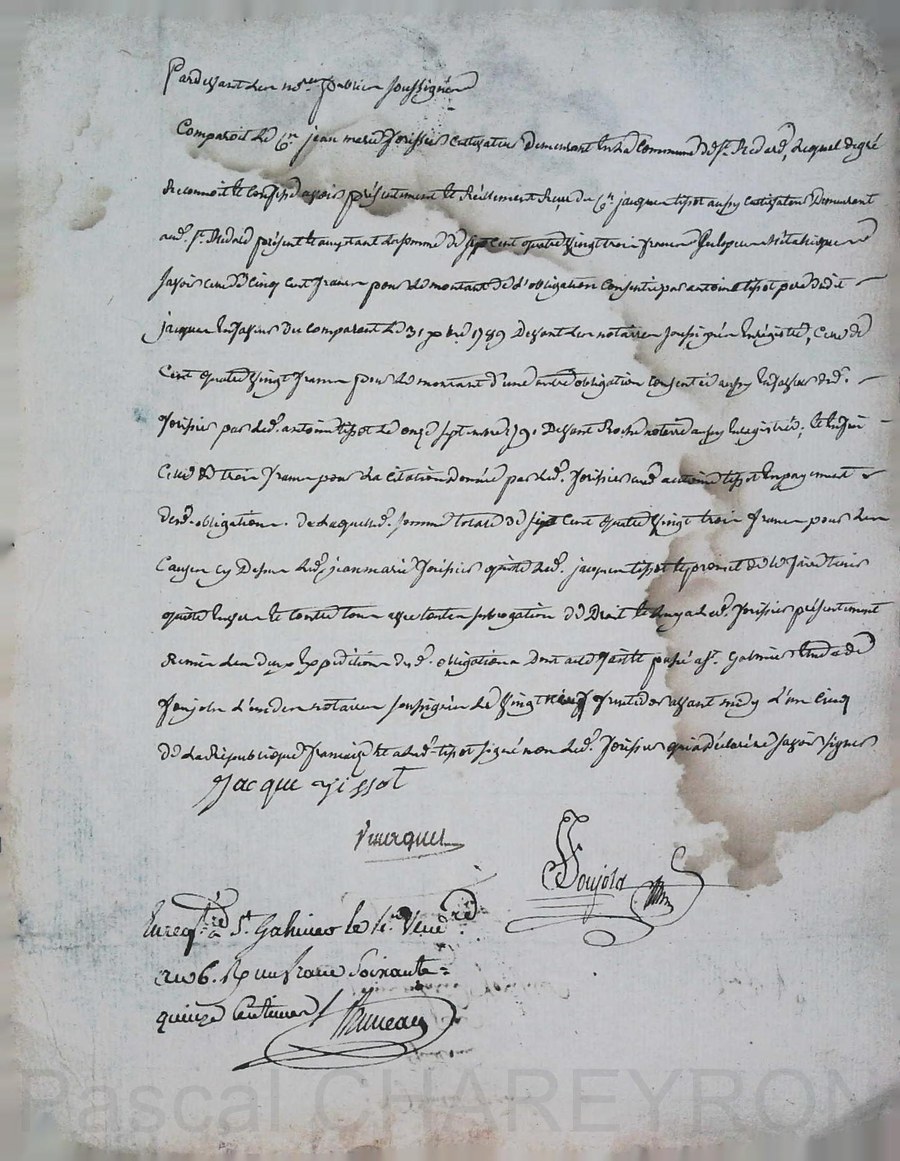 Pardevant les nores publics soussignés
Comparoit le Cn jean marie forissier cultivateur demeurant en la Commune de St. Medard, lequel degré
reconnoit et confesse avoir présentement et réellement reçu du Cn jacques tissot aussy cultivateur demeurant
aud. St. Medard présent et acceptant la somme de sept cent quatre vingt trois francs
Savoir celle de cinq cent francs pour le montant de l'obligation consentie par antoine tissot dudit
jacques en faveur du comparant le 31 xbre 1789 devant les notaires soussignés enregistré, celle de
Cent quatre vingt francs pour le montant d'une autre obligation consentie aussy en faveur dud.
forissier par led. antoine tissot le onze septembre 1790 devant Roche notaire aussy enregistrée; et enfin
Celle de trois francs pour la citation donnée par led. forissier aud. antoine tissot en payement
desd. obligations. de laquelle d. somme totale de sept cent quatre vingt trois francs pour les
Causes cy dessus led. jean marie forissier quitte led. jacques tissot et promet de le faire tenir
quitte envers et contre tous avec subrogation de droit led. forissier présentement
remis les deux expéditions desd. obligations dont acte fait et passé a St. Galmier étude de
Soujola l'un des notaires soussignés le vingt neuf fructidor avant midy l'an cinq
de la République française et a led. tissot signé non led. forissier qui a déclaré ne savoir signer
Jacque Tissot
Soujola
Enregtré à St Galmier le 1er Vendre
an 6. R un franc Soixante=
quinze Centimes